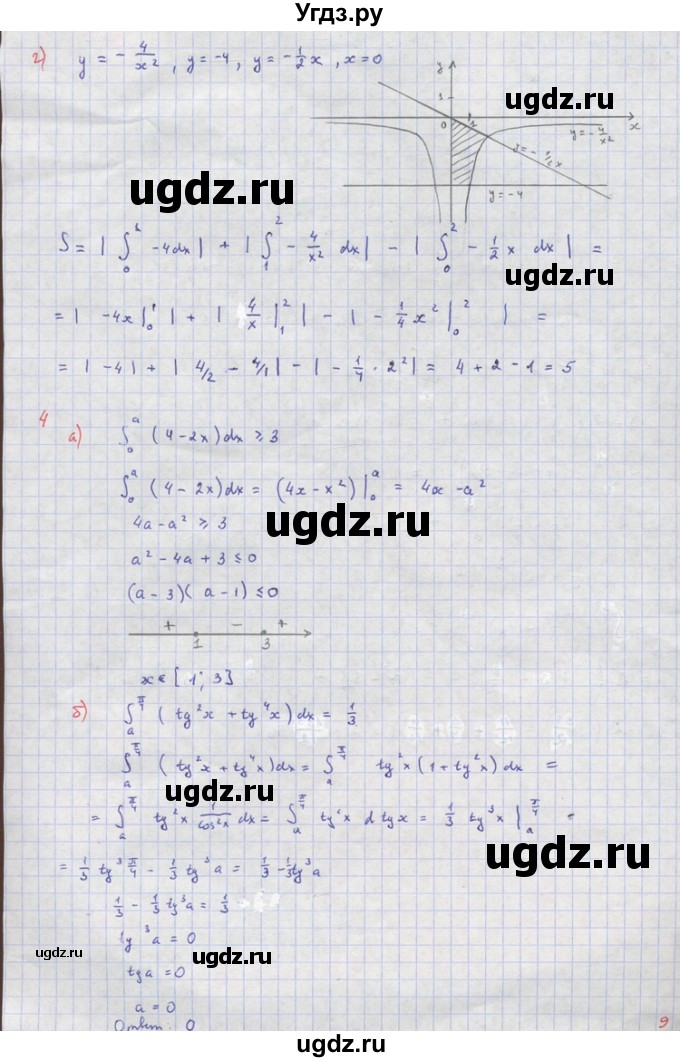 Угдз.ру
г) y = - 4/x², y = -4, y = -1/2 x, x = 0
y
1
0 1 x
y = - 4/x²
y = - 1/2 x
y = -4
ugdz.ru
ugdz.ru
S = | ∫₀¹ -4dx | + | ∫₁² - 4/x² dx | - | ∫₀² - 1/2 x dx | =
ugdz.ru
= | -4x |₀¹ | + | 4/x |₁² | - | - 1/4 x² |₀² | =
= | -4 | + | 4/2 - 4/1 | - | - 1/4 · 2² | = 4 + 2 - 1 = 5
ugdz.ru
4 а) ∫₀ᵃ (4-2x)dx ≥ 3
∫₀ᵃ (4-2x)dx = (4x-x²) |₀ᵃ = 4a - a²
4a - a² ≥ 3
ugdz.ru
a² - 4a + 3 ≤ 0
(a-3)(a-1) ≤ 0
+ - +
1 3
x ∈ [1; 3]
ugdz.ru
б) ∫ₐ^(π/4) (tg²x + tg⁴x)dx = 1/3
∫ₐ^(π/4) (tg²x + tg⁴x)dx = ∫ₐ^(π/4) tg²x (1 + tg²x) dx =
ugdz.ru
= ∫ₐ^(π/4) tg²x 1/cos²x dx = ∫ₐ^(π/4) tg²x d tgx = 1/3 tg³x |ₐ^(π/4) =
= 1/3 tg³ π/4 - 1/3 tg³a = 1/3 - 1/3 tg³a
1/3 - 1/3 tg³a = 1/3
ugdz.ru
tg³a = 0
ugdz.ru
ugdz.ru
tga = 0
a = 0
Ответ: 0
9
ugdz.ru